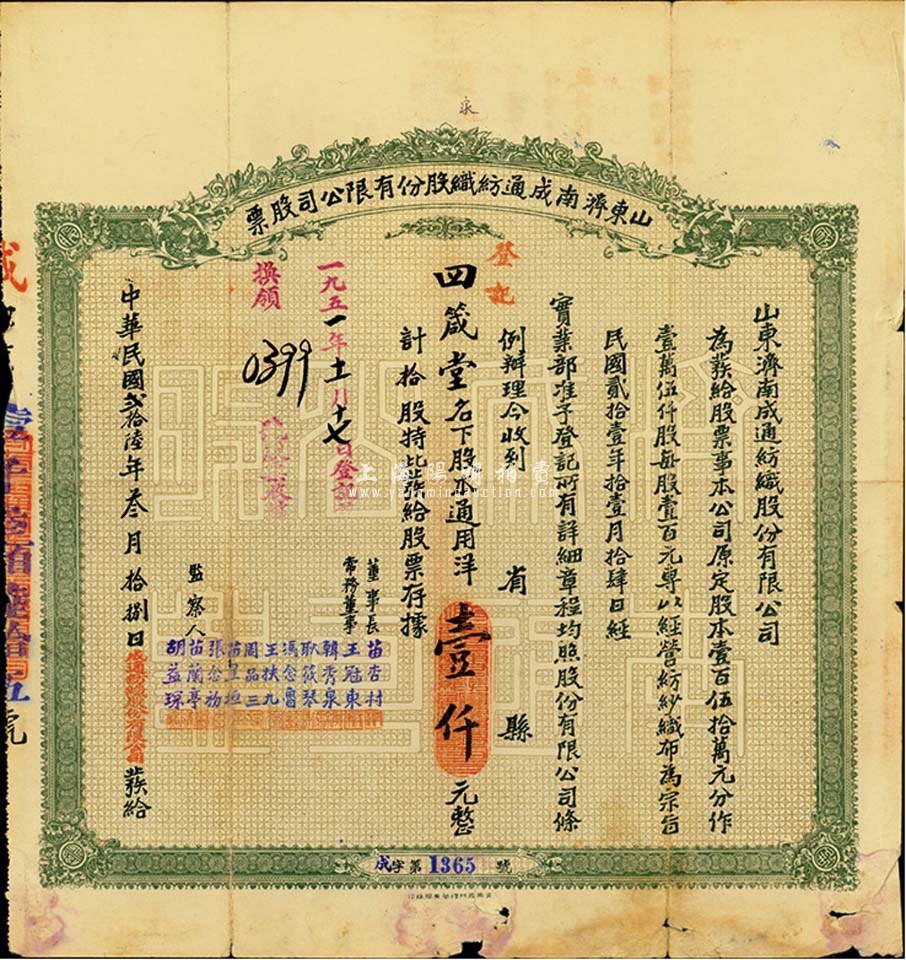 山東濟南成通紡織股份有限公司股票
山東濟南成通紡織股份有限公司
為發給股票事本公司原定股本壹百伍拾萬元分作
壹萬伍仟股每股壹百元專以經營紡紗織布為宗旨
民國貳拾壹年拾壹月拾肆日經
實業部准予登記所有詳細章程均照股份有限公司條
例辦理今收到 省 縣
四箴堂名下股本通用洋壹仟元整
計拾股特此發給股票存據
登記
一九五一年十一月十七日登記
換領
0399
董事長 苗杏村
常務董事 王冠東
韓秀泉
耿筱琴
馮念魯
王扶九
周品三
苗星垣
監察人 張念勃
苗蘭亭
胡益琛
中華民國貳拾陸年叁月拾捌日 發給
成字第1365號
上海陽明拍賣
www.yangmingauction.com
號